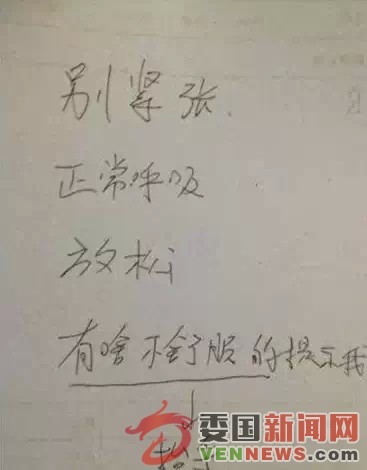 别紧张.
正常呼吸
放松
有啥不舒服的提示我
委国新闻网
VENNEWS.COM